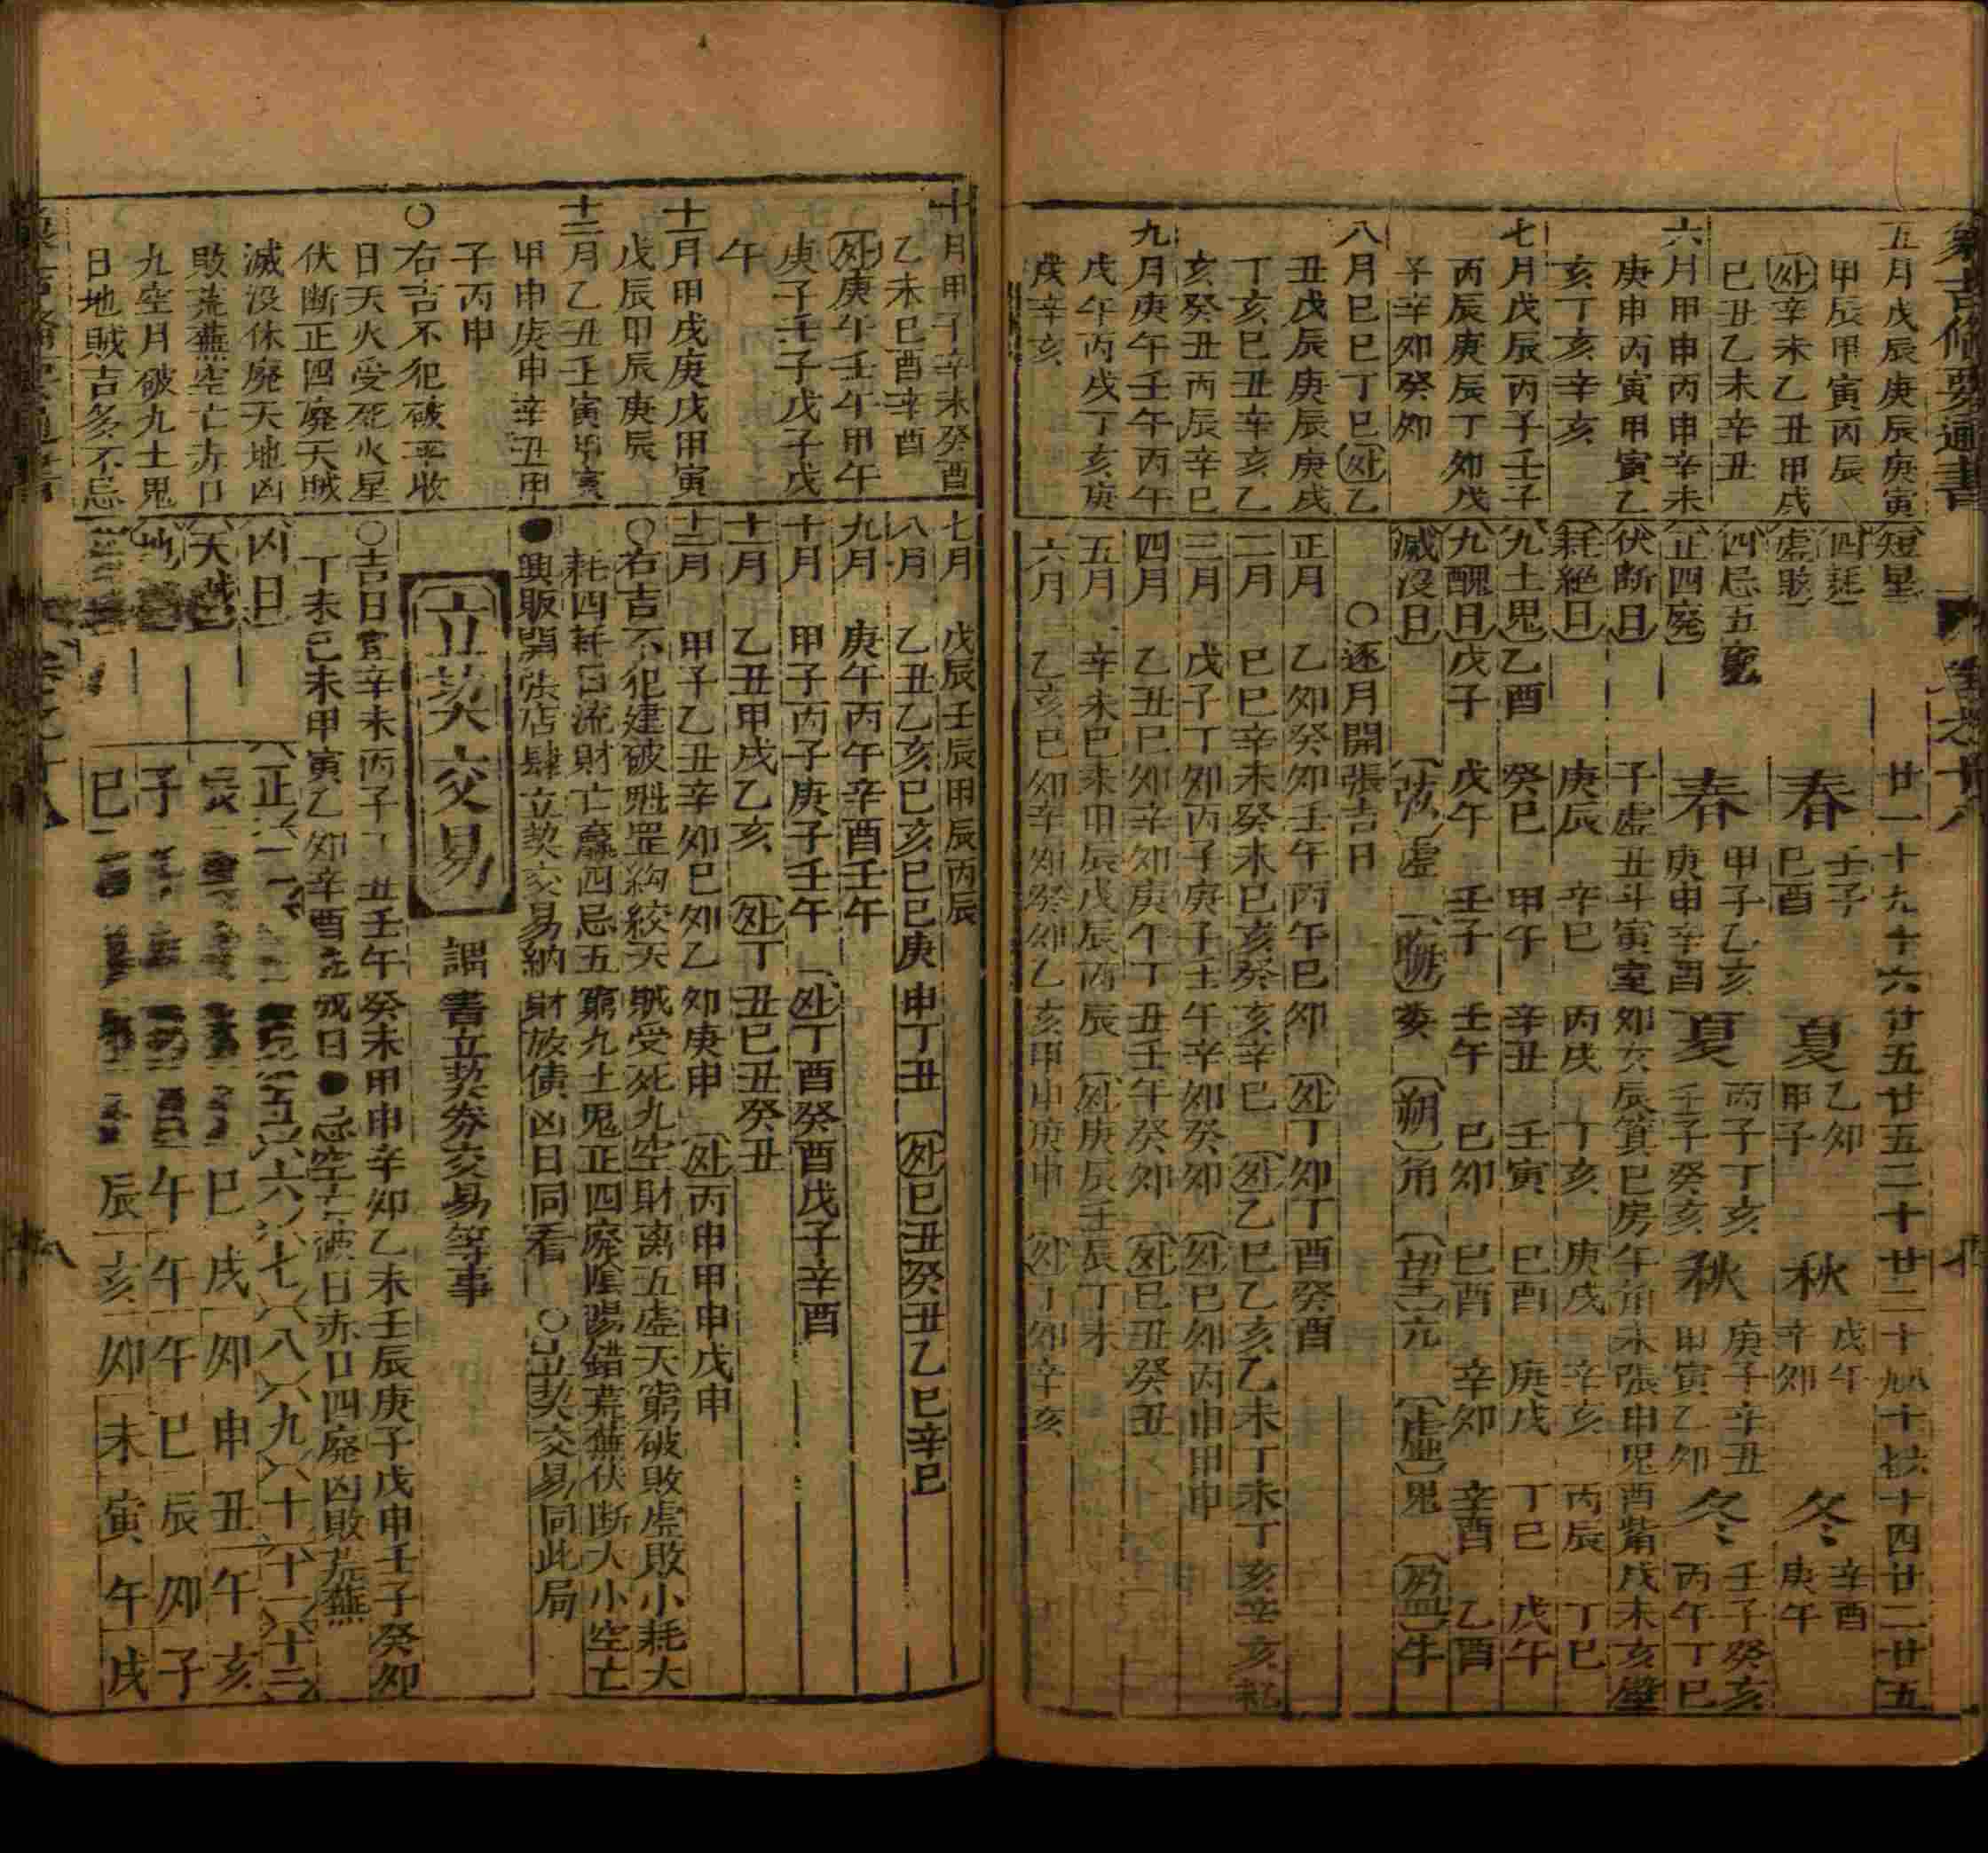 象吉備要通書
卷之十八
五月戊辰庚辰庚寅
甲辰甲寅丙辰
外辛未乙丑甲戌
己丑乙未辛丑
六月甲申丙申辛未
庚申丙寅甲寅乙
亥丁亥辛亥
七月戊辰丙子壬子
丙辰庚辰丁卯戊
子辛卯癸卯
八月己巳丁巳外乙
丑戊辰庚辰庚戌
丁亥己丑辛亥乙
亥癸丑丙辰辛巳
九月庚午壬午丙午
戊午丙戌丁亥庚
戌辛亥
短星 廿一 十九 十六 廿五 廿五 二十 廿二 十四 廿二 廿五
四耗 春 壬子 夏 乙卯 秋 戊午 冬 辛酉
虛敗 己酉 甲子 辛卯 庚午
四忌五窮 春 甲子乙亥 夏 丙子丁亥 秋 庚子辛丑 冬 壬子癸亥
正四廢 庚申辛酉 壬子癸亥 甲寅乙卯 丙午丁巳
伏斷日 子虛 丑斗 寅室 卯女 辰箕 巳房 午角 未張 申鬼 酉觜 戌未 亥壁
耗絕日 庚辰 辛巳 丙戌 丁亥 庚戌 辛亥 丙辰 丁巳
九土鬼 乙酉 癸巳 甲午 辛丑 壬寅 己酉 庚戌 丁巳 戊午
九醜日 戊子 戊午 壬子 壬午 己卯 己酉 辛卯 辛酉 乙酉
滅沒日 弦虛 晦婁 朔角 望亢 虛鬼 盈牛
○逐月開張吉日
正月 乙卯癸卯壬午丙午己卯 外丁卯丁酉癸酉
二月 己巳辛未癸未己亥癸亥辛巳 外乙巳乙亥乙未丁未丁亥辛亥
三月 戊子丁卯丙子庚子壬午辛卯癸卯 外己卯丙申甲申
四月 乙丑己卯辛卯庚午丁丑壬午癸卯 外己丑癸丑
五月 辛未己未甲辰戊辰丙辰 外庚辰壬辰丁未
六月 乙亥己卯辛卯癸卯乙亥甲申庚申 外丁卯辛亥
十月甲子辛未癸酉
乙未己酉辛酉
外庚午壬午甲午
庚子壬子戊子戊
午
十一月甲戌庚戌甲寅
戊辰甲辰庚辰
十二月乙丑壬寅甲寅
甲申庚申辛丑甲
子丙申
○右吉不犯破平收
日天火受死火星
伏斷正四廢天賊
滅沒休廢天地凶
敗荒蕪空亡赤口
九空月破九土鬼
日地賊吉多不忌
七月 戊辰壬辰甲辰丙辰
八月 乙丑乙亥己亥己巳庚申丁丑 外己丑癸丑乙巳辛巳
九月 庚午丙午辛酉壬午
十月 甲子丙子庚子壬午 外丁酉癸酉戊子辛酉
十一月 乙丑甲戌乙亥 外丁丑己丑癸丑
十二月 甲子乙丑辛卯己卯乙卯庚申 外丙申甲申戊申
○右吉不犯建破魁罡勾絞天賊受死九空財離五虛天窮破敗虛敗小耗大
耗四耗日流財亡贏四忌五窮九土鬼正四廢陰陽錯荒蕪伏斷大小空亡
●興販開張店肆立契交易納財放債凶日同看 ○出立契交易同此局
立契交易 謂書立契券交易等事
○吉日宜辛未丙子丁丑壬午癸未甲申辛卯乙未壬辰庚子戊申壬子癸卯
丁未己未甲寅乙卯辛酉 成日●忌空亡 日赤口四廢凶敗荒蕪
凶日 正 二 五 六 七 八 九 十 十一 十二
天賊 巳 戌 卯 申 丑 午 亥
子 午 午 午 巳 辰 卯 子
巳 辰 亥 卯 未 寅 午 戌
象吉備要通書 卷之十八